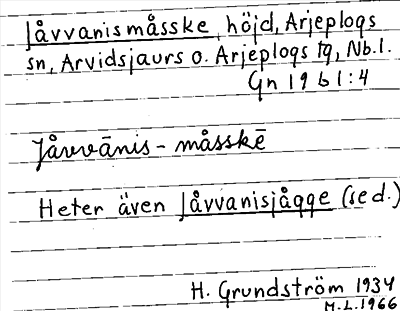 Jåvvanismåsske, höjd, Arjeplogs
sn, Arvidsjaurs o. Arjeplogs tg, Nb.l.
Gn 19 b 1:4
Jåvvānis-måsskē
Heter även Jåvvanisjågge (se d.)
H. Grundström 1934
M.L. 1966